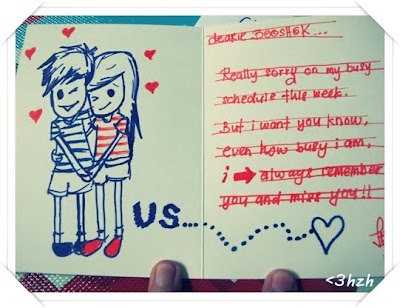 dearie BOOSHOK...
Really sorry on my busy
schedule this week.
But i want you know,
even how busy i am,
i ➡ always remember
you and miss you!!
US....
<3hzh